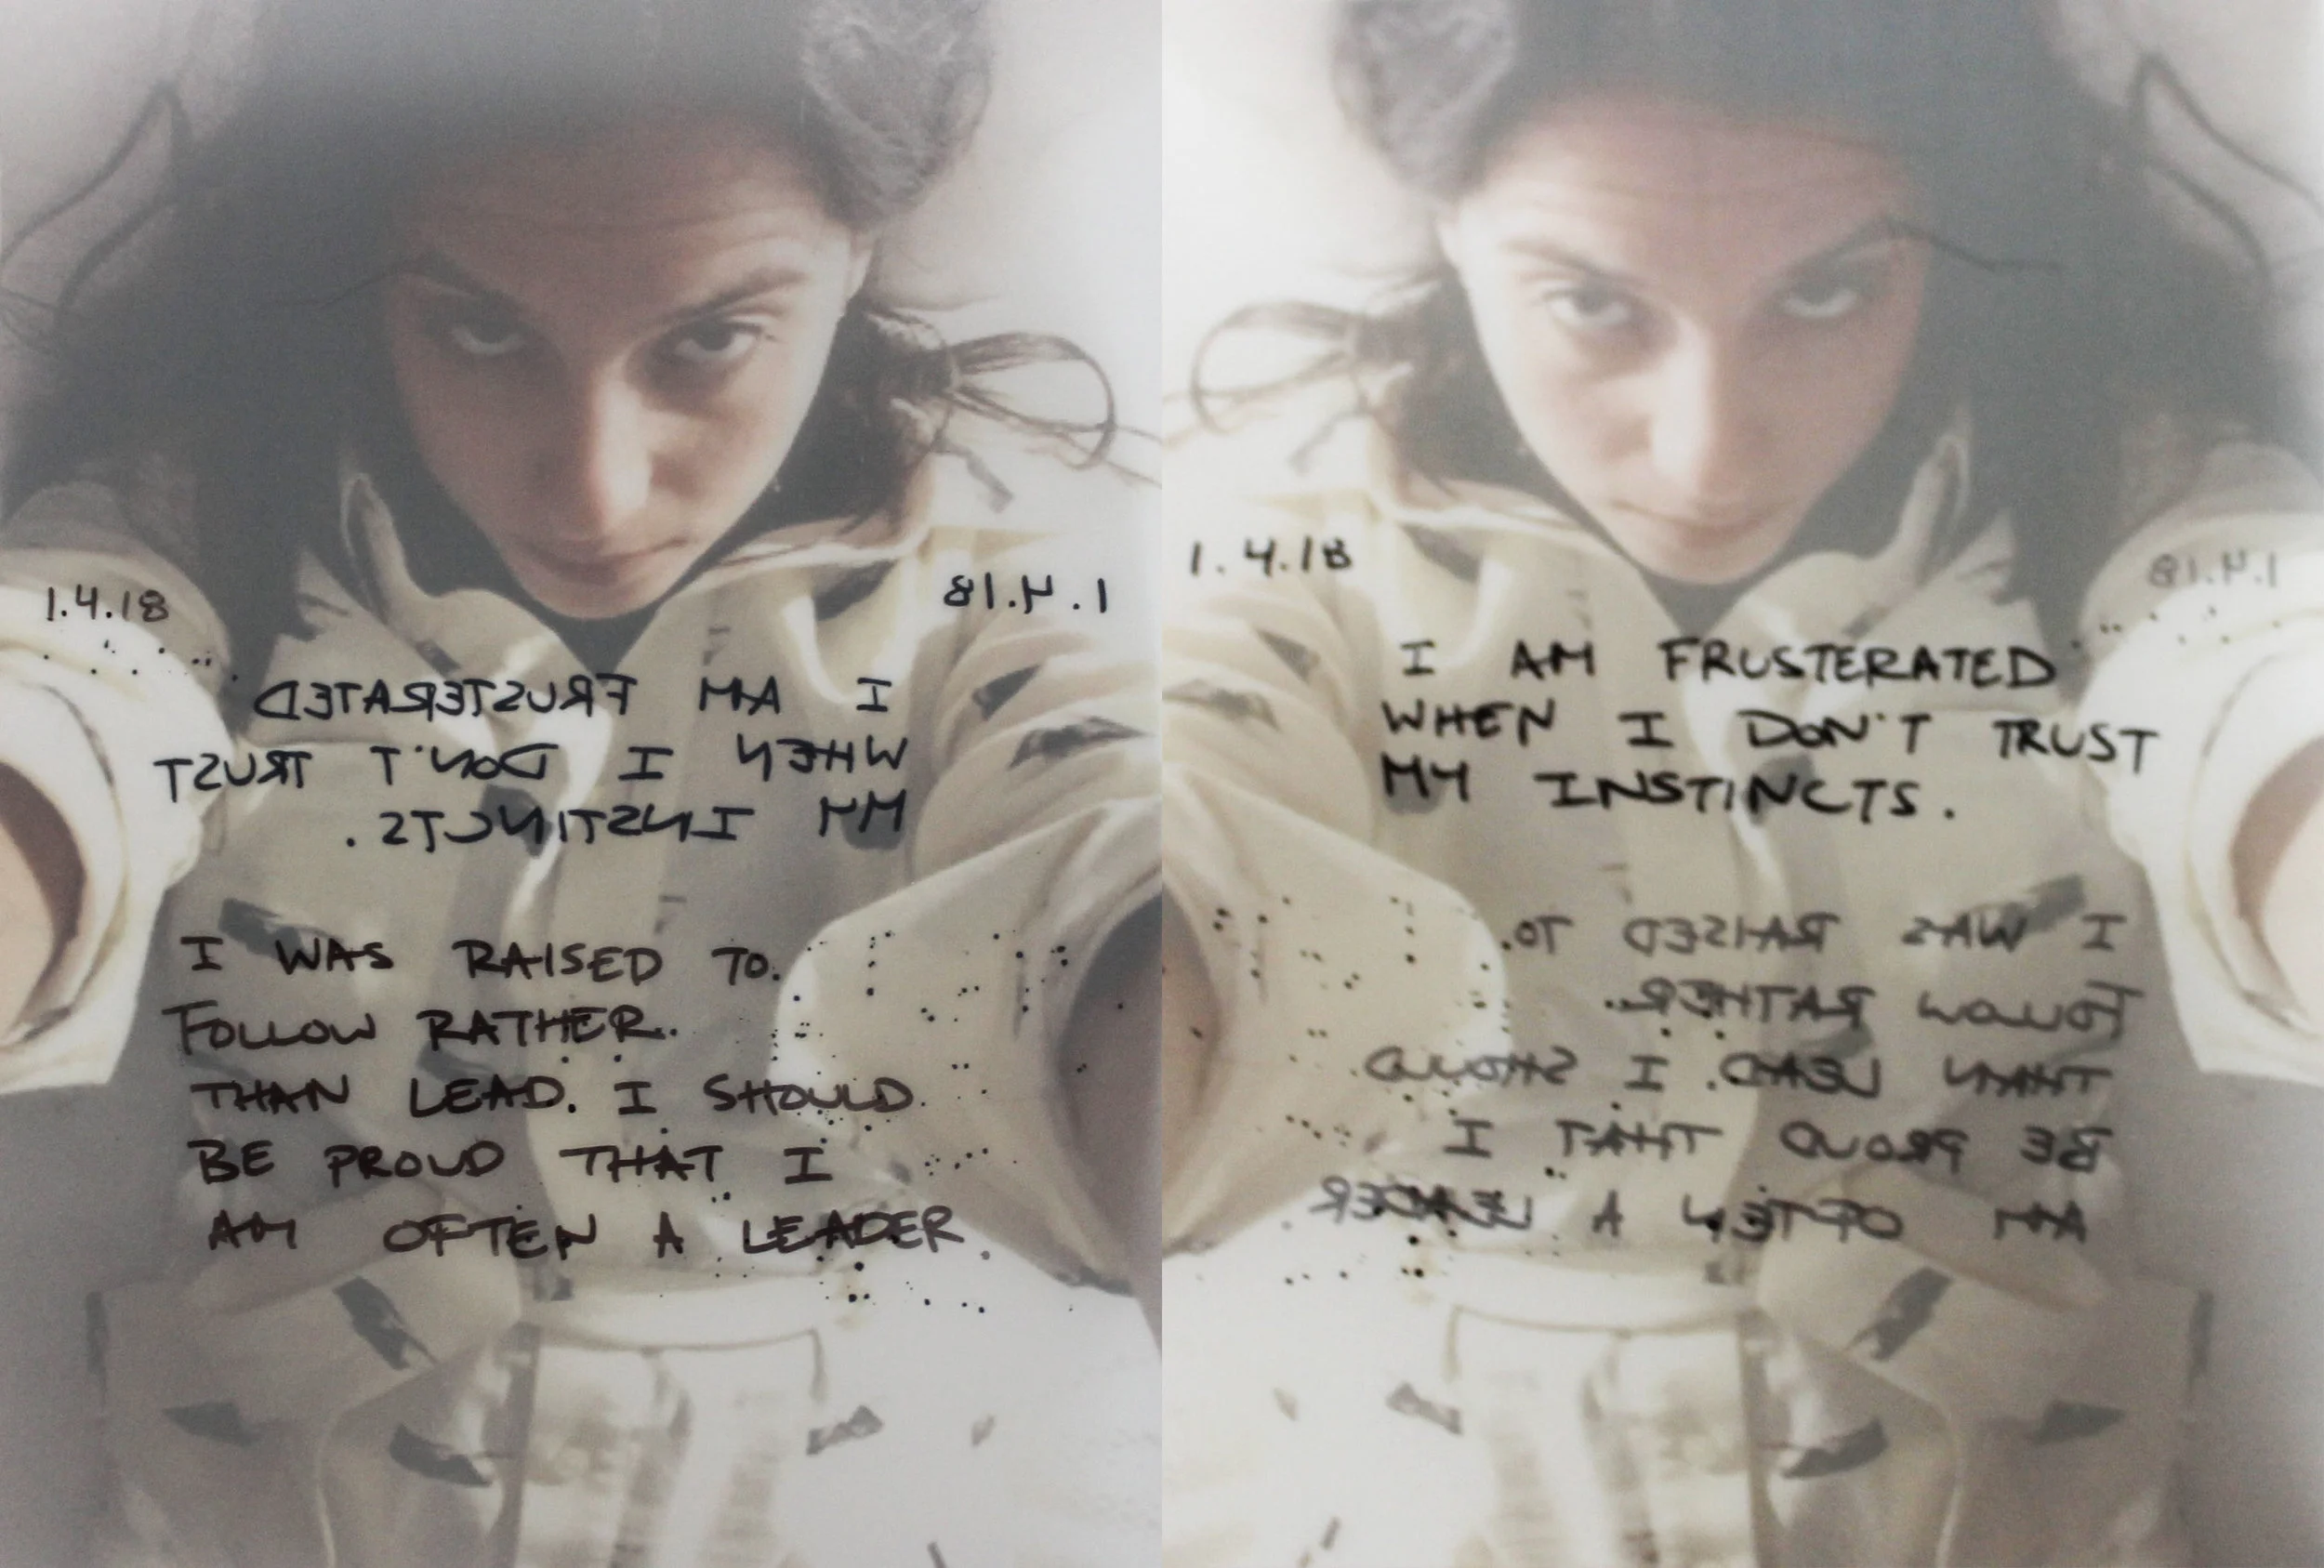 1.4.18
1.4.18
I AM FRUSTERATED
WHEN I DON'T TRUST
MY INSTINCTS.
I WAS RAISED TO.
FOLLOW RATHER.
THAN LEAD. I SHOULD
BE PROUD THAT I
AM OFTEN A LEADER.
1.4.18
1.4.18
I AM FRUSTERATED
WHEN I DON'T TRUST
MY INSTINCTS.
I WAS RAISED TO.
FOLLOW RATHER.
THAN LEAD. I SHOULD
BE PROUD THAT I
AM OFTEN A LEADER.